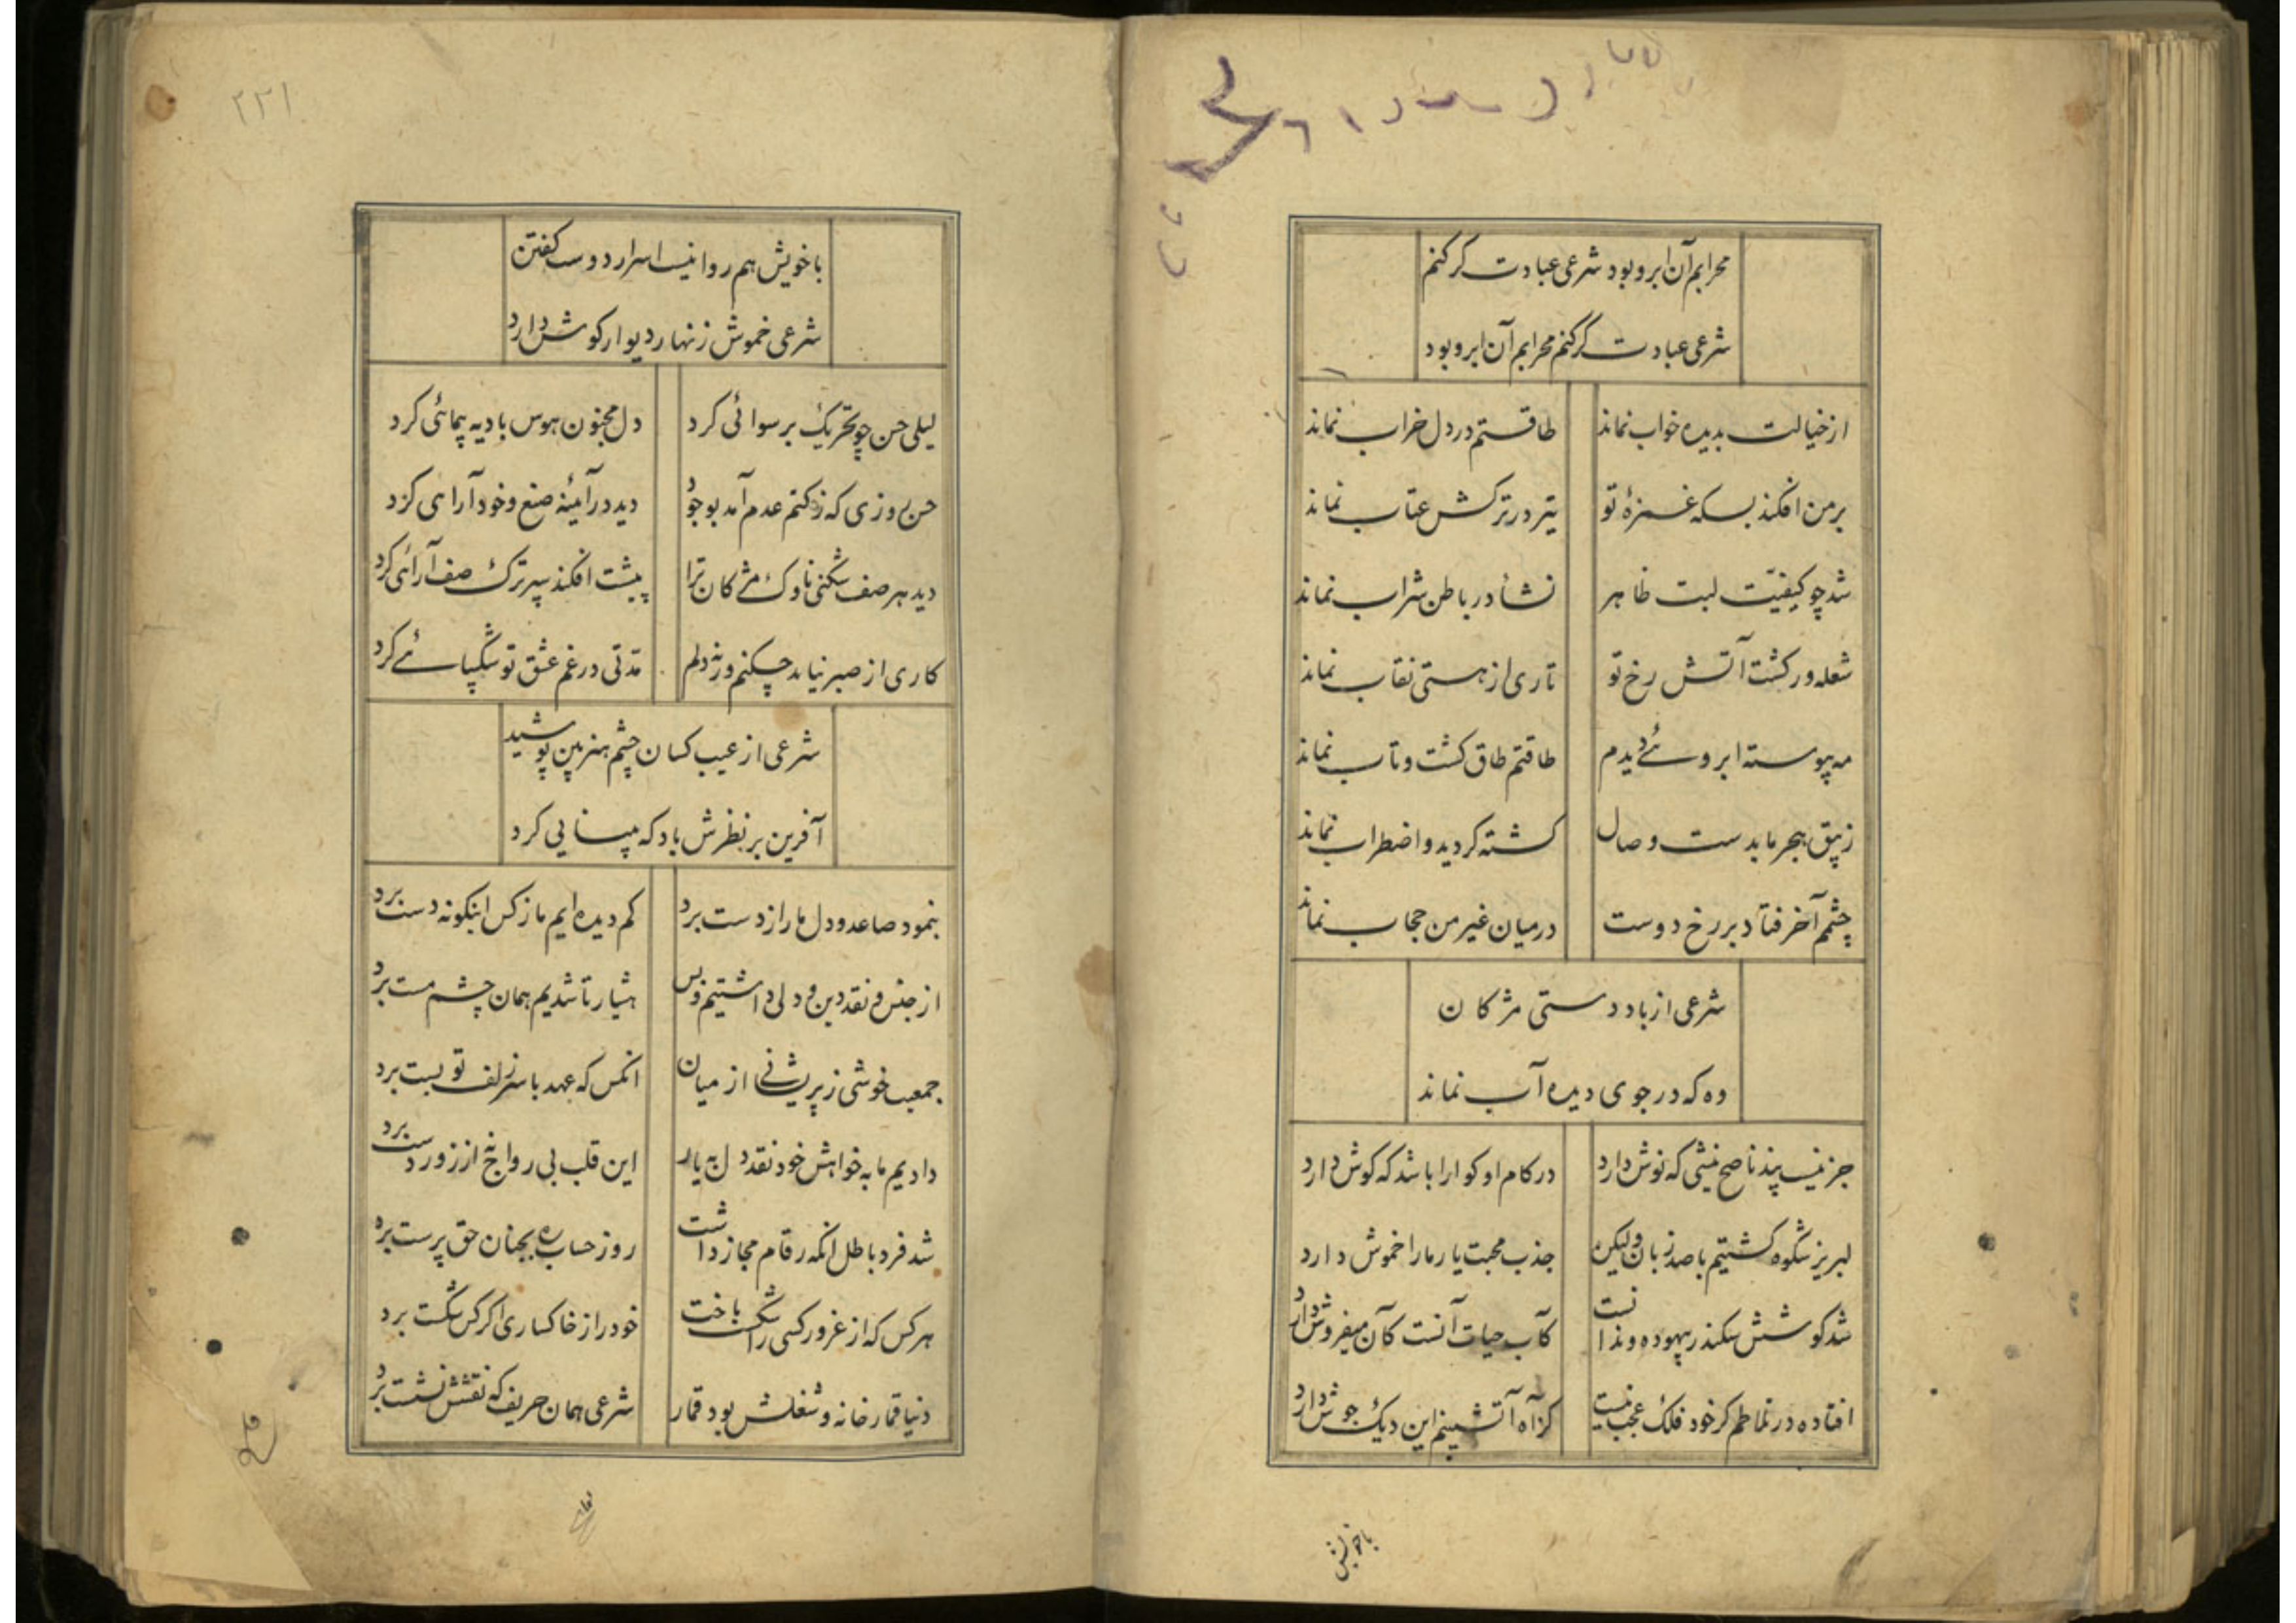 محرابم آن ابرو بود شرعی عبادت گر کنم
شرعی عبادت گر کنم محرابم آن ابرو بود
از خیالت بدیده خواب نماند طاقتم در دل خراب نماند
بر من افکند بسکه غمزهٔ تو تیر در ترکش عتاب نماند
شد چو کیفیّت لبت ظاهر نشأ در باطن شراب نماند
شعله‌ور کشت آتش رخ تو تاری از هستی نقاب نماند
مه پیوسته ابروئے دیدم طاقتم طاق کشت و تاب نماند
زیبق هجر ما بدست وصال کشته کردید و اضطراب نماند
چشمم آخر فتاد بر رخ دوست در میان غیر من حجاب نماند
شرعی از باد دستی مژکان
ده که در جوی دیده آب نماند
جز نیست پند ناصح نیشی که نوش دارد در کام او کوارا باشد که کوش دارد
لبریز شکوه کشتیم با صد زبان ولیکن جذب محبت یار ما را خموش دارد
شد کوشش سکندر بیهوده و ندانست کآب حیات آنست کآن میفروش دارد
افتاده در تلاطم کر خود فلک عجب نیست کز آه آتشینم این دیک جوش دارد
باخویش
۲۲۱
با خویش هم روا نیست اسرار دوست کفتن
شرعی خموش زنهار دیوار کوش دارد
لیلی حسن چو تحریک برسوائی کرد دل مجنون هوس بادیه پیمائی کرد
حسن روزی که ز کتم عدم آمد بوجود دید در آئینه صنع و خود آرائی کرد
دید هر صف شکنی ناوک مژکان ترا پشت افکند سپر ترک صف آرائی کرد
کاری از صبر نیاید چکنم ورنه دلم مدتی در غم عشق تو شکیبائے کرد
شرعی از عیب کسان چشم هنر بین پوشید
آفرین بر نظرش باد که بینایی کرد
بنمود صاعد و دل ما را ز دست برد کم دیده ایم ما ز کس اینکونه دست برد
از جنس و نقد دین و دلی داشتیم و بس هشیار تا شدیم همان چشم مست برد
جمعیت خوشی ز پریشانے از میان انکس که عهد با سر زلف تو بست برد
دادیم ما به خواهش خود نقد دل به یار این قلب بی رواج نه از زور دست برد
شد فرد باطل انکه رقام مجاز داشت روز حساب ره بجنان حق پرست برد
هر کس که از غرور کسی را شکست باخت خود را ز خاکساری اکر کس شکست برد
دنیا قمارخانه و شغلش بود قمار شرعی همان حریف که نقشش نشست برد